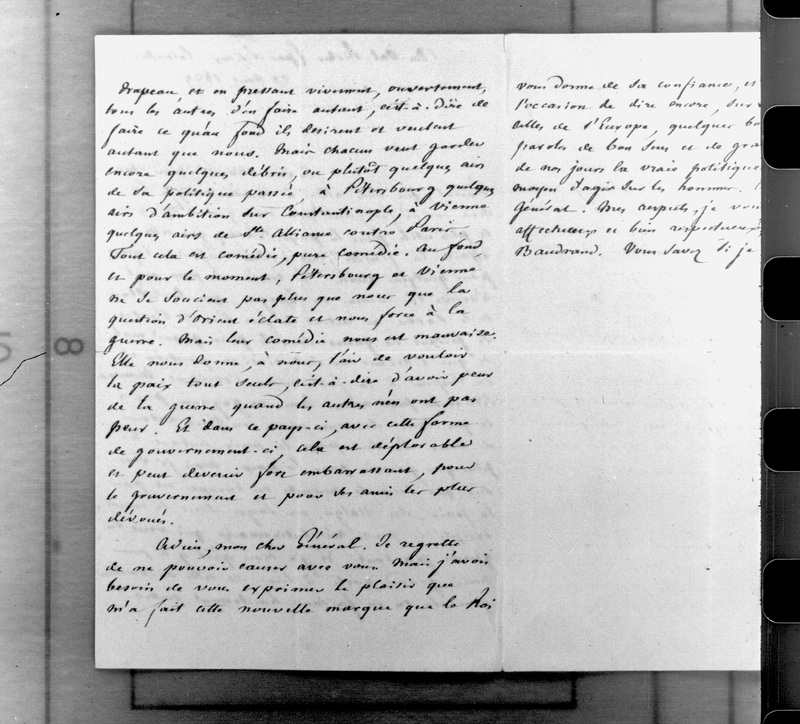 drapeau et en pressant vivement, ouvertement,
tous les autres d'en faire autant, c'est-à-dire de
faire ce qu'au fond ils desirent et veulent
autant que nous. Mais chacun veut garder
encore quelques débris, ou plutôt quelques airs
de sa politique passée, à Pétersbourg quelques
airs d'ambition sur Constantinople, à Vienne
quelques airs de Ste Alliance contre Paris.
Tout cela est comédie, pure comédie. Au fond
et pour le moment, Pétersbourg et Vienne
ne se soucient pas plus que nous que la
question d'Orient éclate et nous force à la
guerre. Mais leur comédie nous est mauvaise.
Elle nous donne, à nous, l'air de vouloir
la paix tout seuls, c'est-à-dire d'avoir peur
de la guerre quand les autres n'en ont pas
peur. Et dans ce pays-ci, avec cette forme
de gouvernement-ci, cela est déplorable
et peut devenir fort embarrassant, pour
le gouvernement et pour ses amis les plus
dévoués.
Adieu, mon cher Général. Je regrette
de ne pouvoir causer avec vous. Mais j'avois
besoin de vous exprimer le plaisir que
m'a fait cette nouvelle marque que le Roi
vous donne de sa confiance, et
l'occasion de dire encore, sur
celles de l'Europe, quelques
paroles de bon sens et de
de nos jours la vraie politique
moyen d'agir sur les hommes.
Général. Mes respects, je
affectueux et bien respectueux
Baudrand. Vous savez si je
8